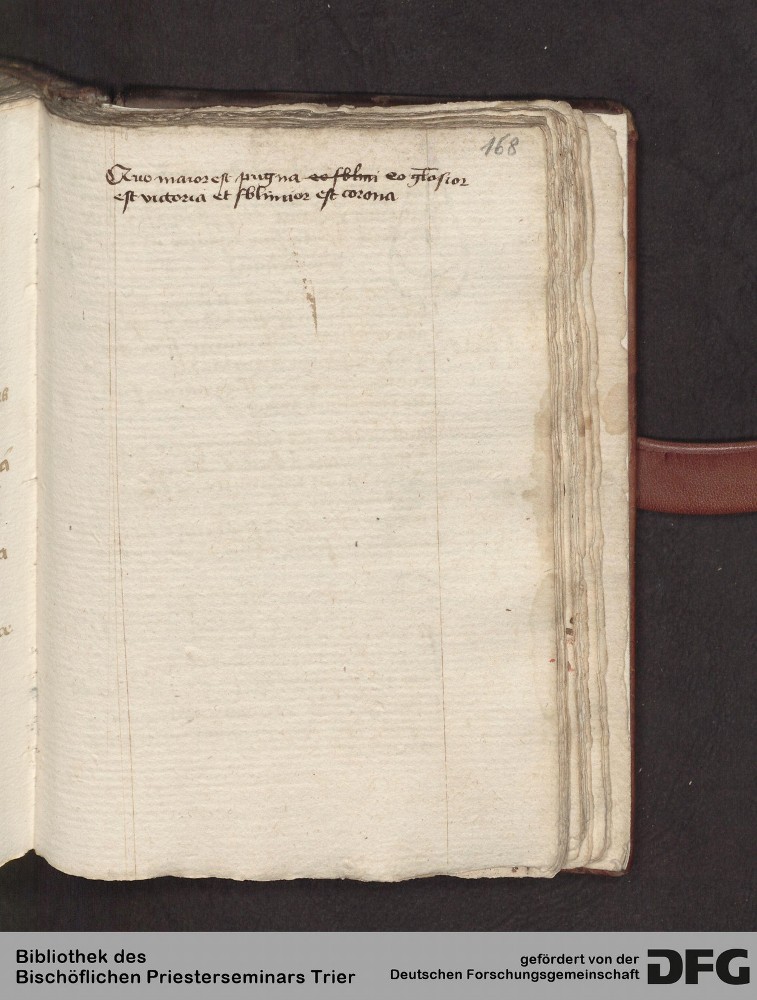 168
Quo maior est pugna eo sblimi eo gl̅osior
est victoria et sblimior est corona
Bibliothek des
Bischöflichen Priesterseminars Trier
gefördert von der
Deutschen Forschungsgemeinschaft
DFG